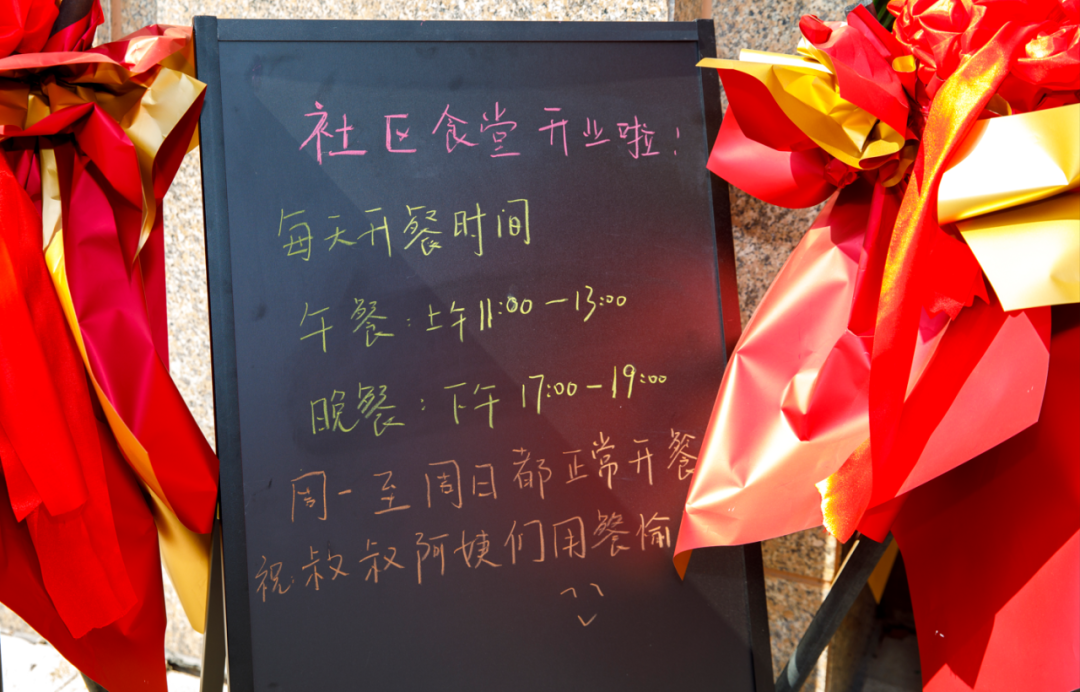 社区食堂开业啦！
每天开餐时间
午餐：上午11:00－13:00
晚餐：下午17:00－19:00
周一至周日都正常开餐
祝叔叔阿姨们用餐愉